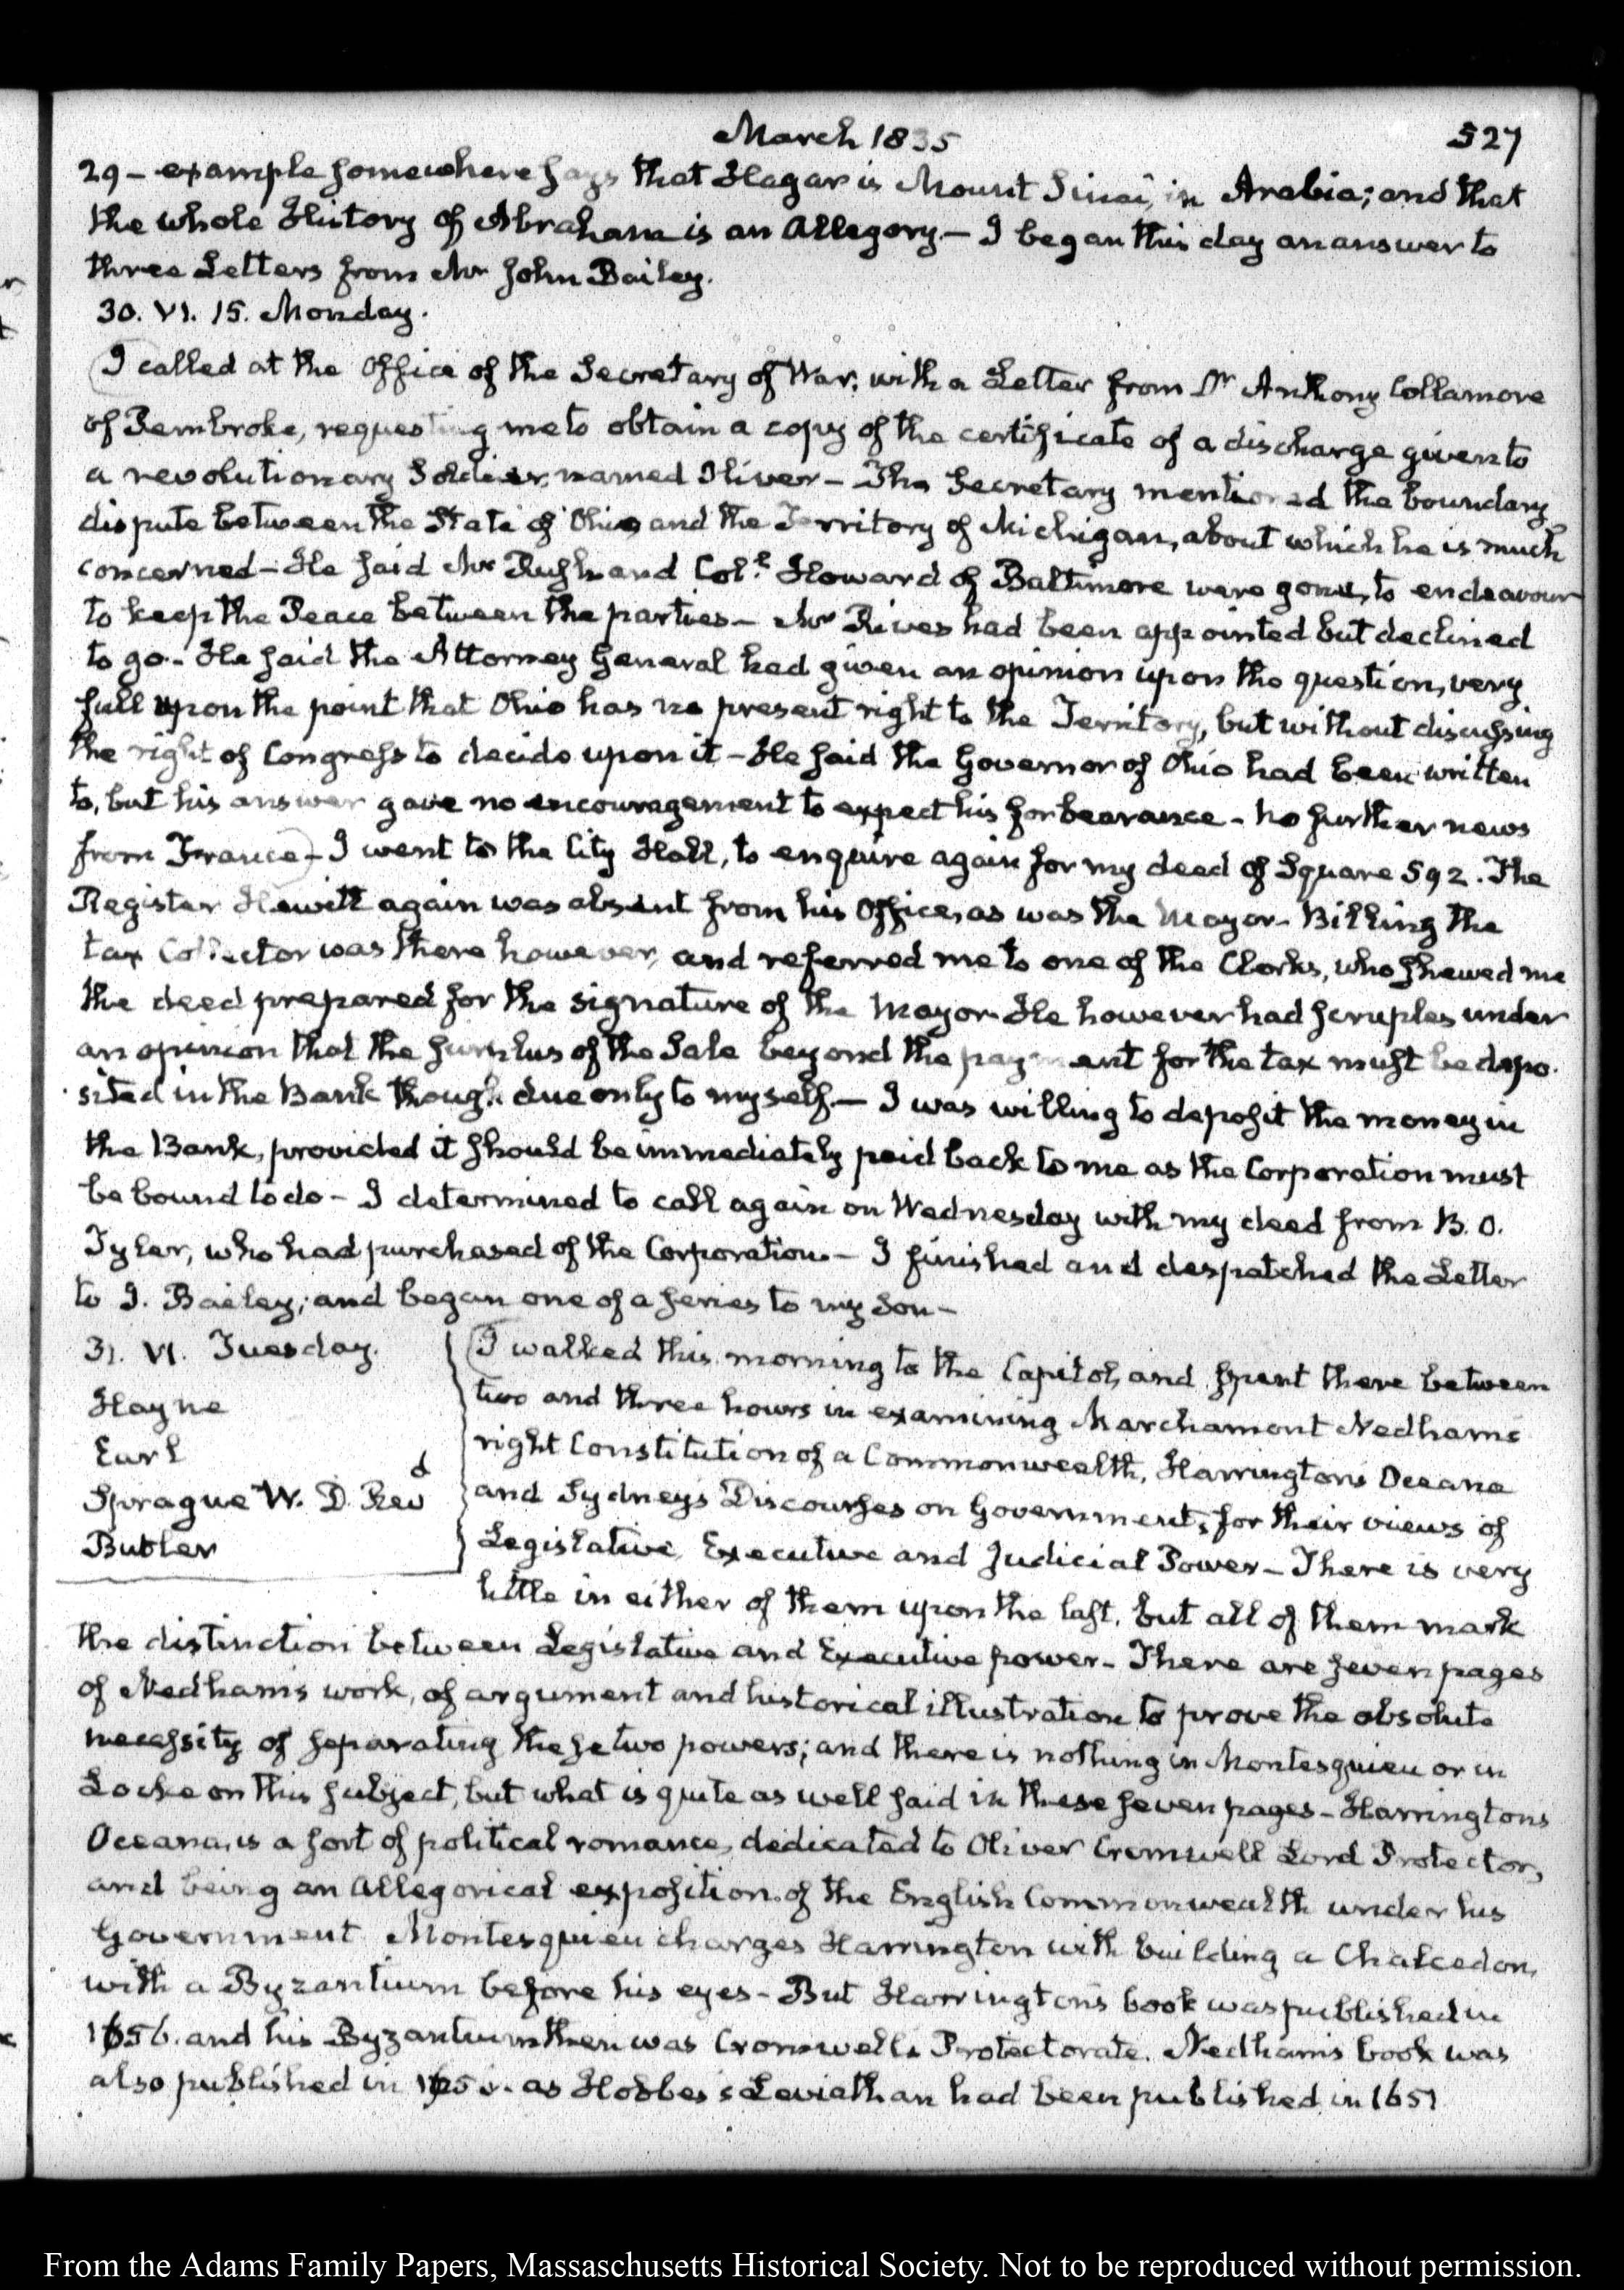 March 1835
527
29 – example somewhere says that Hagar is Mount Sinai, in Arabia; and that
the whole History of Abraham is an Allegory. – I began this day an answer to
three Letters from Mr John Bailey.
30. VI. 15. Monday.
I called at the Office of the Secretary of War, with a Letter from Dr Anthony Collamore
of Pembroke, requesting me to obtain a copy of the certificate of a discharge given to
a revolutionary Soldier, named – The Secretary mentioned the boundary
dispute between the State of Ohio and the Territory of Michigan, about which he is much
concerned – He said Mr Rush and Coll. Howard of Baltimore were gone, to endeavour
to keep the Peace between the parties – Mr Rives had been appointed but declined
to go – He said the Attorney General had given an opinion upon the question, very
full upon the point that Ohio has no present right to the Territory, but without discussing
the right of Congress to decide upon it – He said the Governor of Ohio had been written
to, but his answer gave no encouragement to expect his forbearance – no further news
from France – I went to the City Hall, to enquire again for my deed of Square 592. The
Register Hewitt again was absent from his Office, as was the Mayor – Billing the
tax Collector was there however, and referred me to one of the Clerks, who shewed me
the deed prepared for the signature of the Mayor. He however had scruples under
an opinion that the surplus of the Sale beyond the payment for the tax must be depo-
sited in the Bank though due only to myself – I was willing to deposit the money in
the Bank, provided it should be immediately paid back to me as the Corporation must
be bound to do – I determined to call again on Wednesday with my deed from B. O.
Tyler, who had purchased of the Corporation. – I finished and despatched the Letter
to J. Bailey; and began one of a series to my Son –
31. VI. Tuesday.
Hayne
Earl
Sprague W. D. Revd
Butler
I walked this morning to the Capitol, and spent there between
two and three hours in examining Marchamont Nedhams
right Constitution of a Commonwealth, Harringtons Oceana
and Sydneys Discourses on Government, for their views of
Legislative, Executive and Judicial Power – There is very
little in either of them upon the last, but all of them mark
the distinction between Legislative and Executive power – There are seven pages
of Nedham's work, of argument and historical illustration to prove the absolute
necessity of separating these two powers; and there is nothing in Montesquieu or in
Locke on this subject, but what is quite as well said in these seven pages – Harringtons
Oceana, is a sort of political romance, dedicated to Oliver Cromwell Lord Protector,
and being an Allegorical exposition of the English Commonwealth under his
Government Montesquieu charges Harrington with building a Chalcedon,
with a Byzantium before his eyes – But Harrington's book was published in
1656. and his Byzantium then was Cromwells Protectorate. Nedham's book was
also published in as Hobbes's Leviathan had been published in 1651
From the Adams Family Papers, Massachusetts Historical Society. Not to be reproduced without permission.